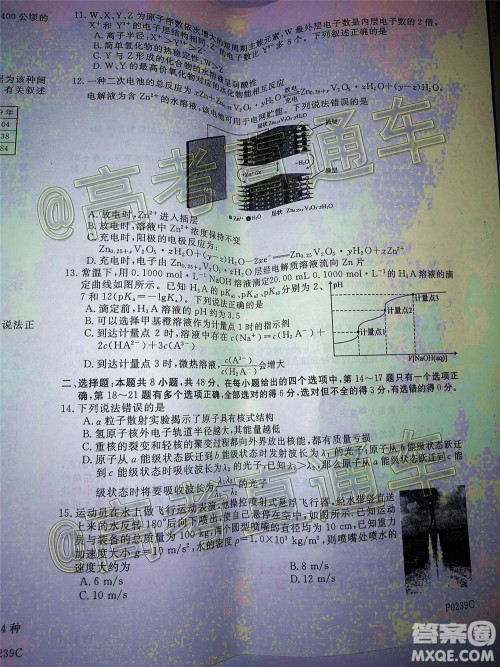 400 公顷的
11. W、X、Y、Z 为原子序数依次增大的短周期主族元素, W 最外层电子数是内层电子数的 2 倍,
X⁺ 和 Y⁻ 的电子层结构相同, Z 原子电子数比 Y 多 8 个。下列叙述正确的是
A. 离子半径:X⁺
B. 简单氢化物的热稳定性:W>Z
C. Y 与 Z 形成的化合物的水溶液呈弱酸性
D. W、Z 的最高价氧化物对应的水化物能相互反应
据为该种间
有关叙述
12. 一种二次电池的总反应为
电解液为含 Zn²⁺ 的水溶液,该电池可用于电网贮能。下列说法错误的是
放电
充电
9 年
04
38
84
A. 放电时,Zn²⁺ 进入插层
B. 放电时,溶液中 Zn²⁺ 浓度保持不变
C. 充电时,阳极的电极反应为:
D. 充电时,
层经电解质溶液流向 Zn 片
13. 常温下,用 0.1000 mol·L⁻¹ NaOH 溶液滴定 20.00 mL 0.1000 mol·L⁻¹ 的 H₃A 溶液的滴
定曲线如图所示。已知 H₃A 的 pKa₁、pKa₂、pKa₃ 分别为 2、
7 和 12(pKa=−lgKa)。下列说法正确的是
A. 滴定前,H₃A 溶液的 pH 约为 3.5
B. 可以选择甲基橙溶液作为计量点 1 的指示剂
C. 到达计量点 2 时,溶液中存在 c(Na⁺)=c(H₂A⁻)+
2c(HA²⁻)+3c(A³⁻)
D. 到达计量点 3 时,微热溶液,c(A³⁻)/c(HA²⁻)会增大
pH
计量点3
计量点2
计量点1
V[NaOH(aq)]
说法正
二、选择题:本题共 8 小题,共 48 分。在每小题给出的四个选项中,第 14~17 题只有一个选项正
确,第 18~21 题有多个选项正确,全部选对的得 6 分,选对但不全的得 3 分,有选错的得 0 分。
14. 下列说法错误的是
A. α 粒子散射实验揭示了原子具有核式结构
B. 氢原子核外电子轨道半径越大,其能量越低
C. 重核的裂变和轻核的聚变过程都向外界放出核能,都有质量亏损
D. 原子从 a 能级状态跃迁到 b 能级状态时发射波长为 λ₁ 的光子;原子从 b 能级状态跃迁
到 c 能级状态时吸收波长为 λ₂ 的光子,已知 λ₁>λ₂,那么原子从 a 能级状态跃迁到 c 能
级状态时将要吸收波长为 λ₁λ₂/(λ₁−λ₂) 的光子
15. 运动员在水上做飞行运动表演,他操控喷射式悬浮飞行器,将水带竖直送
上来的水反转 180°后向下喷出,使自己悬停在空中,如图所示。已知运动
员与装备的总质量为 100 kg,两个圆型喷嘴的直径均为 10 cm,已知重力
加速度大小 g=10 m/s²,水的密度 ρ=1.0×10³ kg/m³,则喷嘴处喷水的
速度大约为
A. 6 m/s
B. 8 m/s
C. 10 m/s
D. 12 m/s
P0239C
4 种
239C
@高考直通车
@高考直通车
答案圈
MXQE.COM